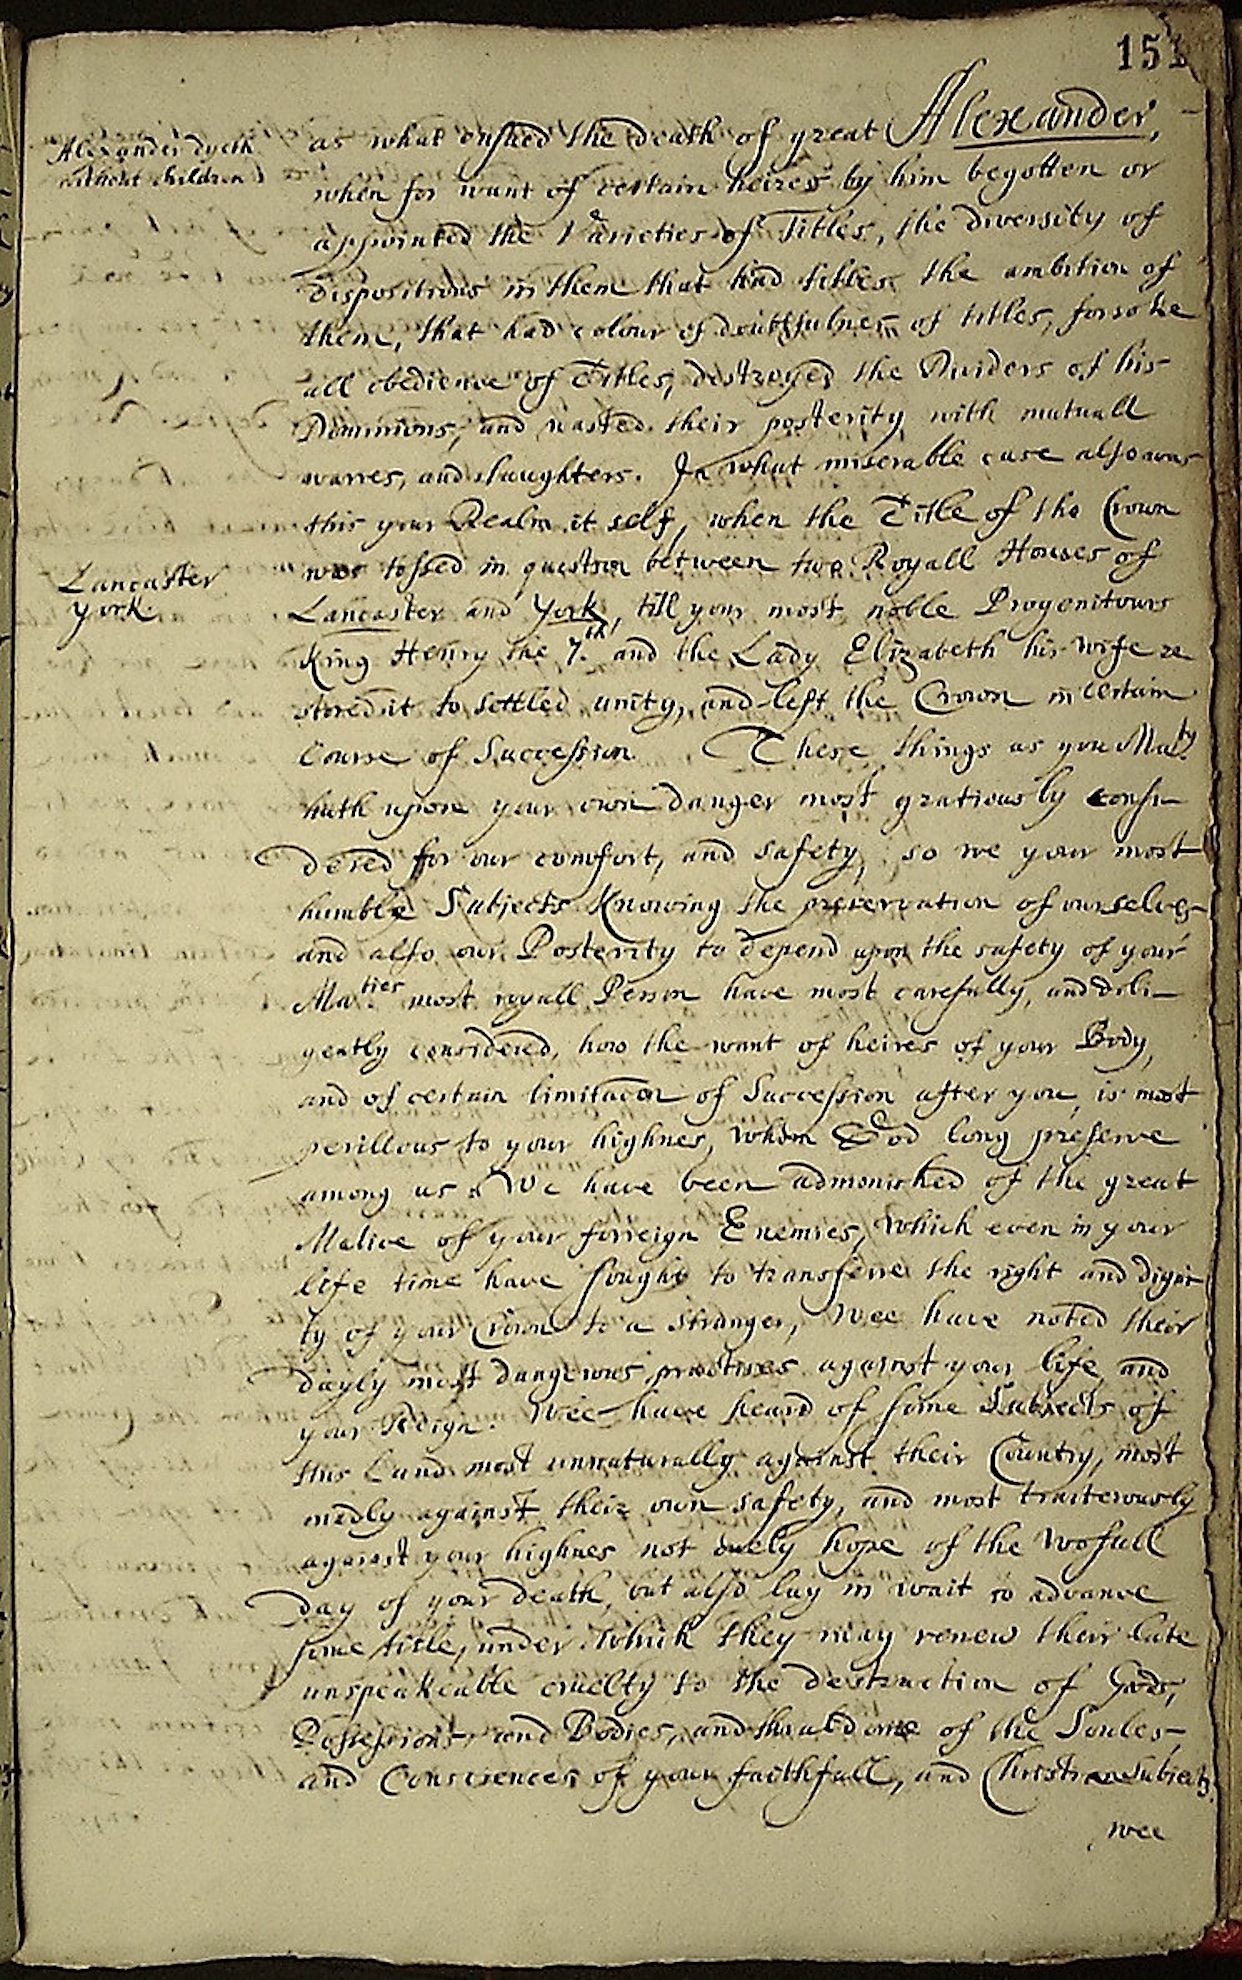 151
Alexander dyeth
without children
as what ensued the death of great Alexander,
when for want of certain heires by him begotten or
appointed the Varieties of Titles, the diversity of
Dispositions in them that had titles, the ambition of
them, that had colour of doubtfulnes of titles, forsooke
all obedience of Titles, destroyed the Dividers of his
Dominions, and wasted their posterity with mutuall
warres, and slaughters. In what miserable case also was
this your Realm it self, when the Title of the Crown
was tossed in question between two Royall Houses of
Lancaster
York.
Lancaster and York, till your most noble Progenitours
King Henry the 7.th and the Lady Elizabeth his wife re
stored it to settled unity, and left the Crown in certain
Course of Succession. These things as you Ma.ty
hath upon your own danger most gratiously consi-
dered for our comfort, and safety, so we your most
humble Subjects Knowing the preservation of ourselves
and also our Posterity to depend upon the safety of your
Ma.ties most royall Person have most carefully, and dili-
gently considered, how the want of heires of your Body,
and of certain limitacon of Succession after you, is most
perillous to your highnes, whom God long preserve
among us. We have been admonished of the great
Malice of your forreign Enemies, which even in your
life time have sought to transferre the right and digni
ty of your Crown to a stranger, Wee have noted their
dayly most dangerous practises against your life, and
your Reign. Wee have heard of some Subjects of
this Land most unnaturally against their Country, most
madly against their own safety, and most traiterously
against your highnes not onely hope of the wofull
day of your death, but also lay in wait to advance
some title, under which they may renew their late
unspeakeable cruelty to the destruction of Goods,
Possessions, and Bodies, and thraldome of the Soules
and Consciences of your faithfull, and Christian Subjects.
wee